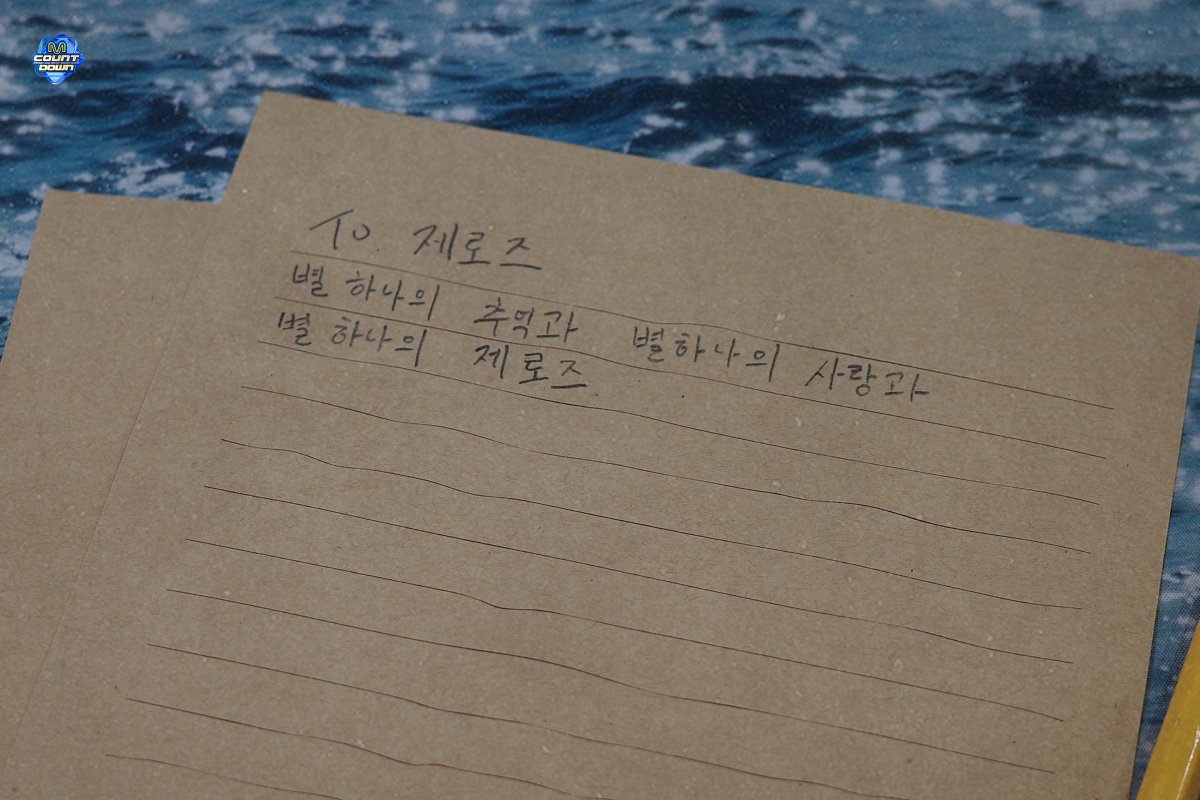 M
COUNT
DOWN
To. 제로즈
별 하나의 추억과 별 하나의 사랑과
별 하나의 제로즈.